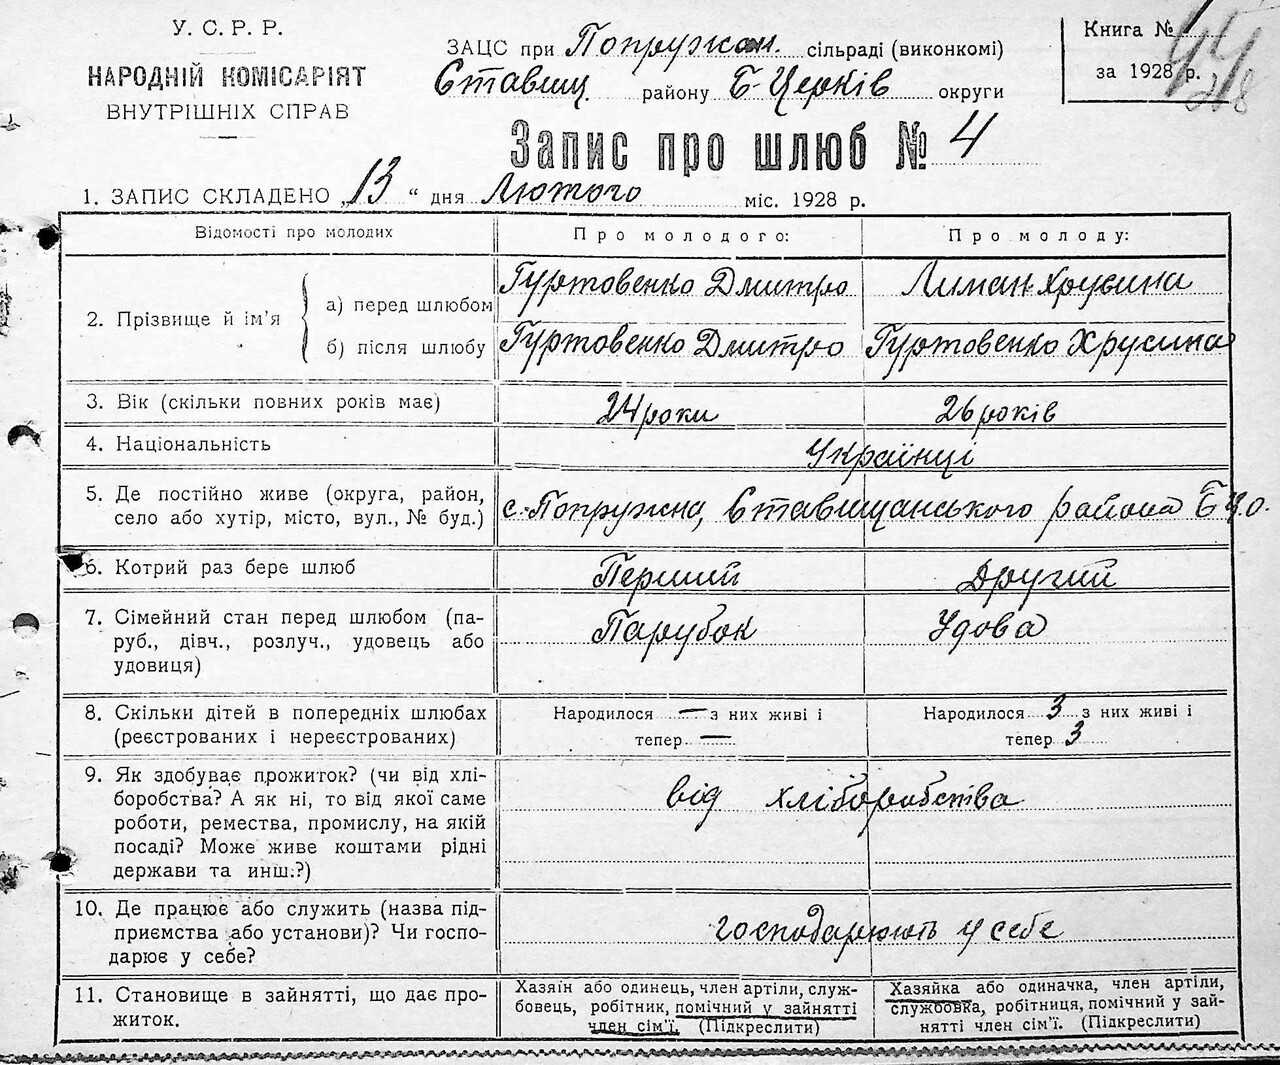 У. С. Р. Р.
НАРОДНІЙ КОМІСАРІЯТ
ВНУТРІШНІХ СПРАВ
ЗАЦС при Попружан. сільраді (виконкомі)
Ставищ. району Б-Церків округи
Книга №
за 1928 р.
Запис про шлюб № 4
1. ЗАПИС СКЛАДЕНО „13“ дня Лютого міс. 1928 р.
Відомості про молодих
Про молодого:
Про молоду:
2. Прізвище й ім'я
а) перед шлюбом
Гуртовенко Дмитро
Лиман Хрусина
б) після шлюбу
Гуртовенко Дмитро
Гуртовенко Хрусина
3. Вік (скільки повних років має)
24 роки
26 років
4. Національність
Українці
5. Де постійно живе (округа, район,
село або хутір, місто, вул., № буд.)
с. Попружна, Ставищанського района Б Ц О.
6. Котрий раз бере шлюб
Перший
Другий
7. Сімейний стан перед шлюбом (па-
руб., дівч., розлуч., удовець або
удовиця)
Парубок
Удова
8. Скільки дітей в попередніх шлюбах
(реєстрованих і нереєстрованих)
Народилося — з них живі і
тепер —
Народилося 3 з них живі і
тепер 3
9. Як здобуває прожиток? (чи від хлі-
боробства? А як ні, то від якої саме
роботи, ремества, промислу, на якій
посаді? Може живе коштами рідні
держави та инш.?)
від хліборобства
10. Де працює або служить (назва під-
приємства або установи)? Чи госпо-
дарює у себе?
господарюють у себе
11. Становище в зайнятті, що дає про-
житок.
Хазяїн або одинець, член артіли, служ-
бовець, робітник, помічний у зайнятті
член сім'ї. (Підкреслити)
Хазяйка або одиначка, член артіли,
службовка, робітниця, помічний у зай-
нятті член сім'ї. (Підкреслити)